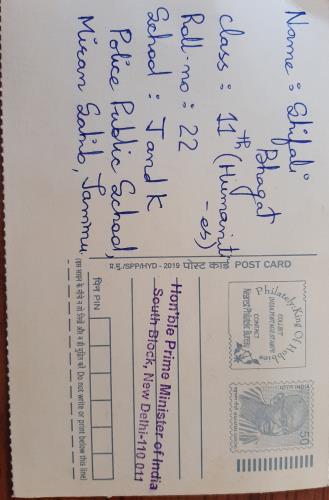 Name : Shifali
Bhagat
class : 11th (Humanit
-es)
Roll.no : 22
School : J and K
Police Public School,
Miran Sahib, Jammu.
प्र.मु./SPP/HYD - 2019 पोस्ट कार्ड POST CARD
Philately-King Of Hobbies
COLLECT
INDIA POSTAGE STAMPS
CONTACT
Nearest Philatelic Bureau
50
Hon'ble Prime Minister of India
South Block, New Delhi-110 011
पिन PIN
(इस लाइन के नीचे न तो लिखें और न ही मुद्रित करें Do not write or print below this line)